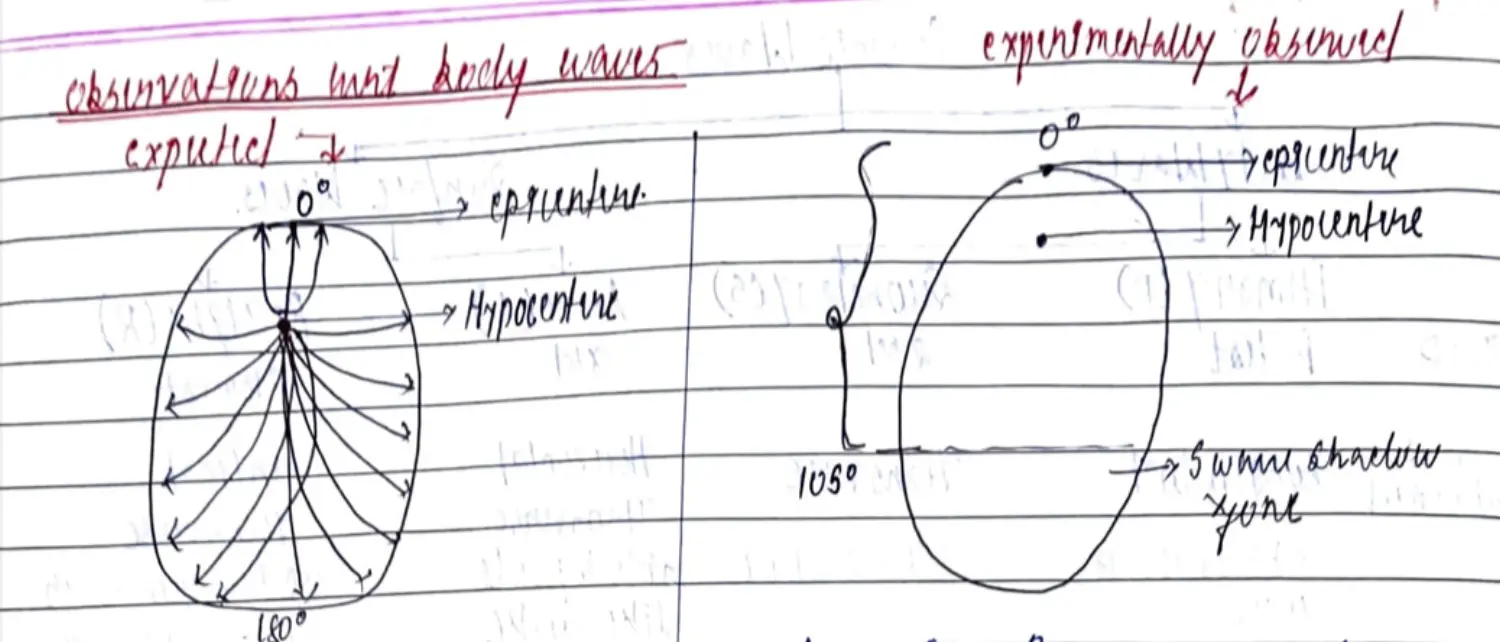 observations wrt body waves
expected →
0°
→ epicentre.
→ Hypocentre
180°
experimentally observed
0°
→ epicentre
→ Hypocentre
105°
→ S wave shadow
zone